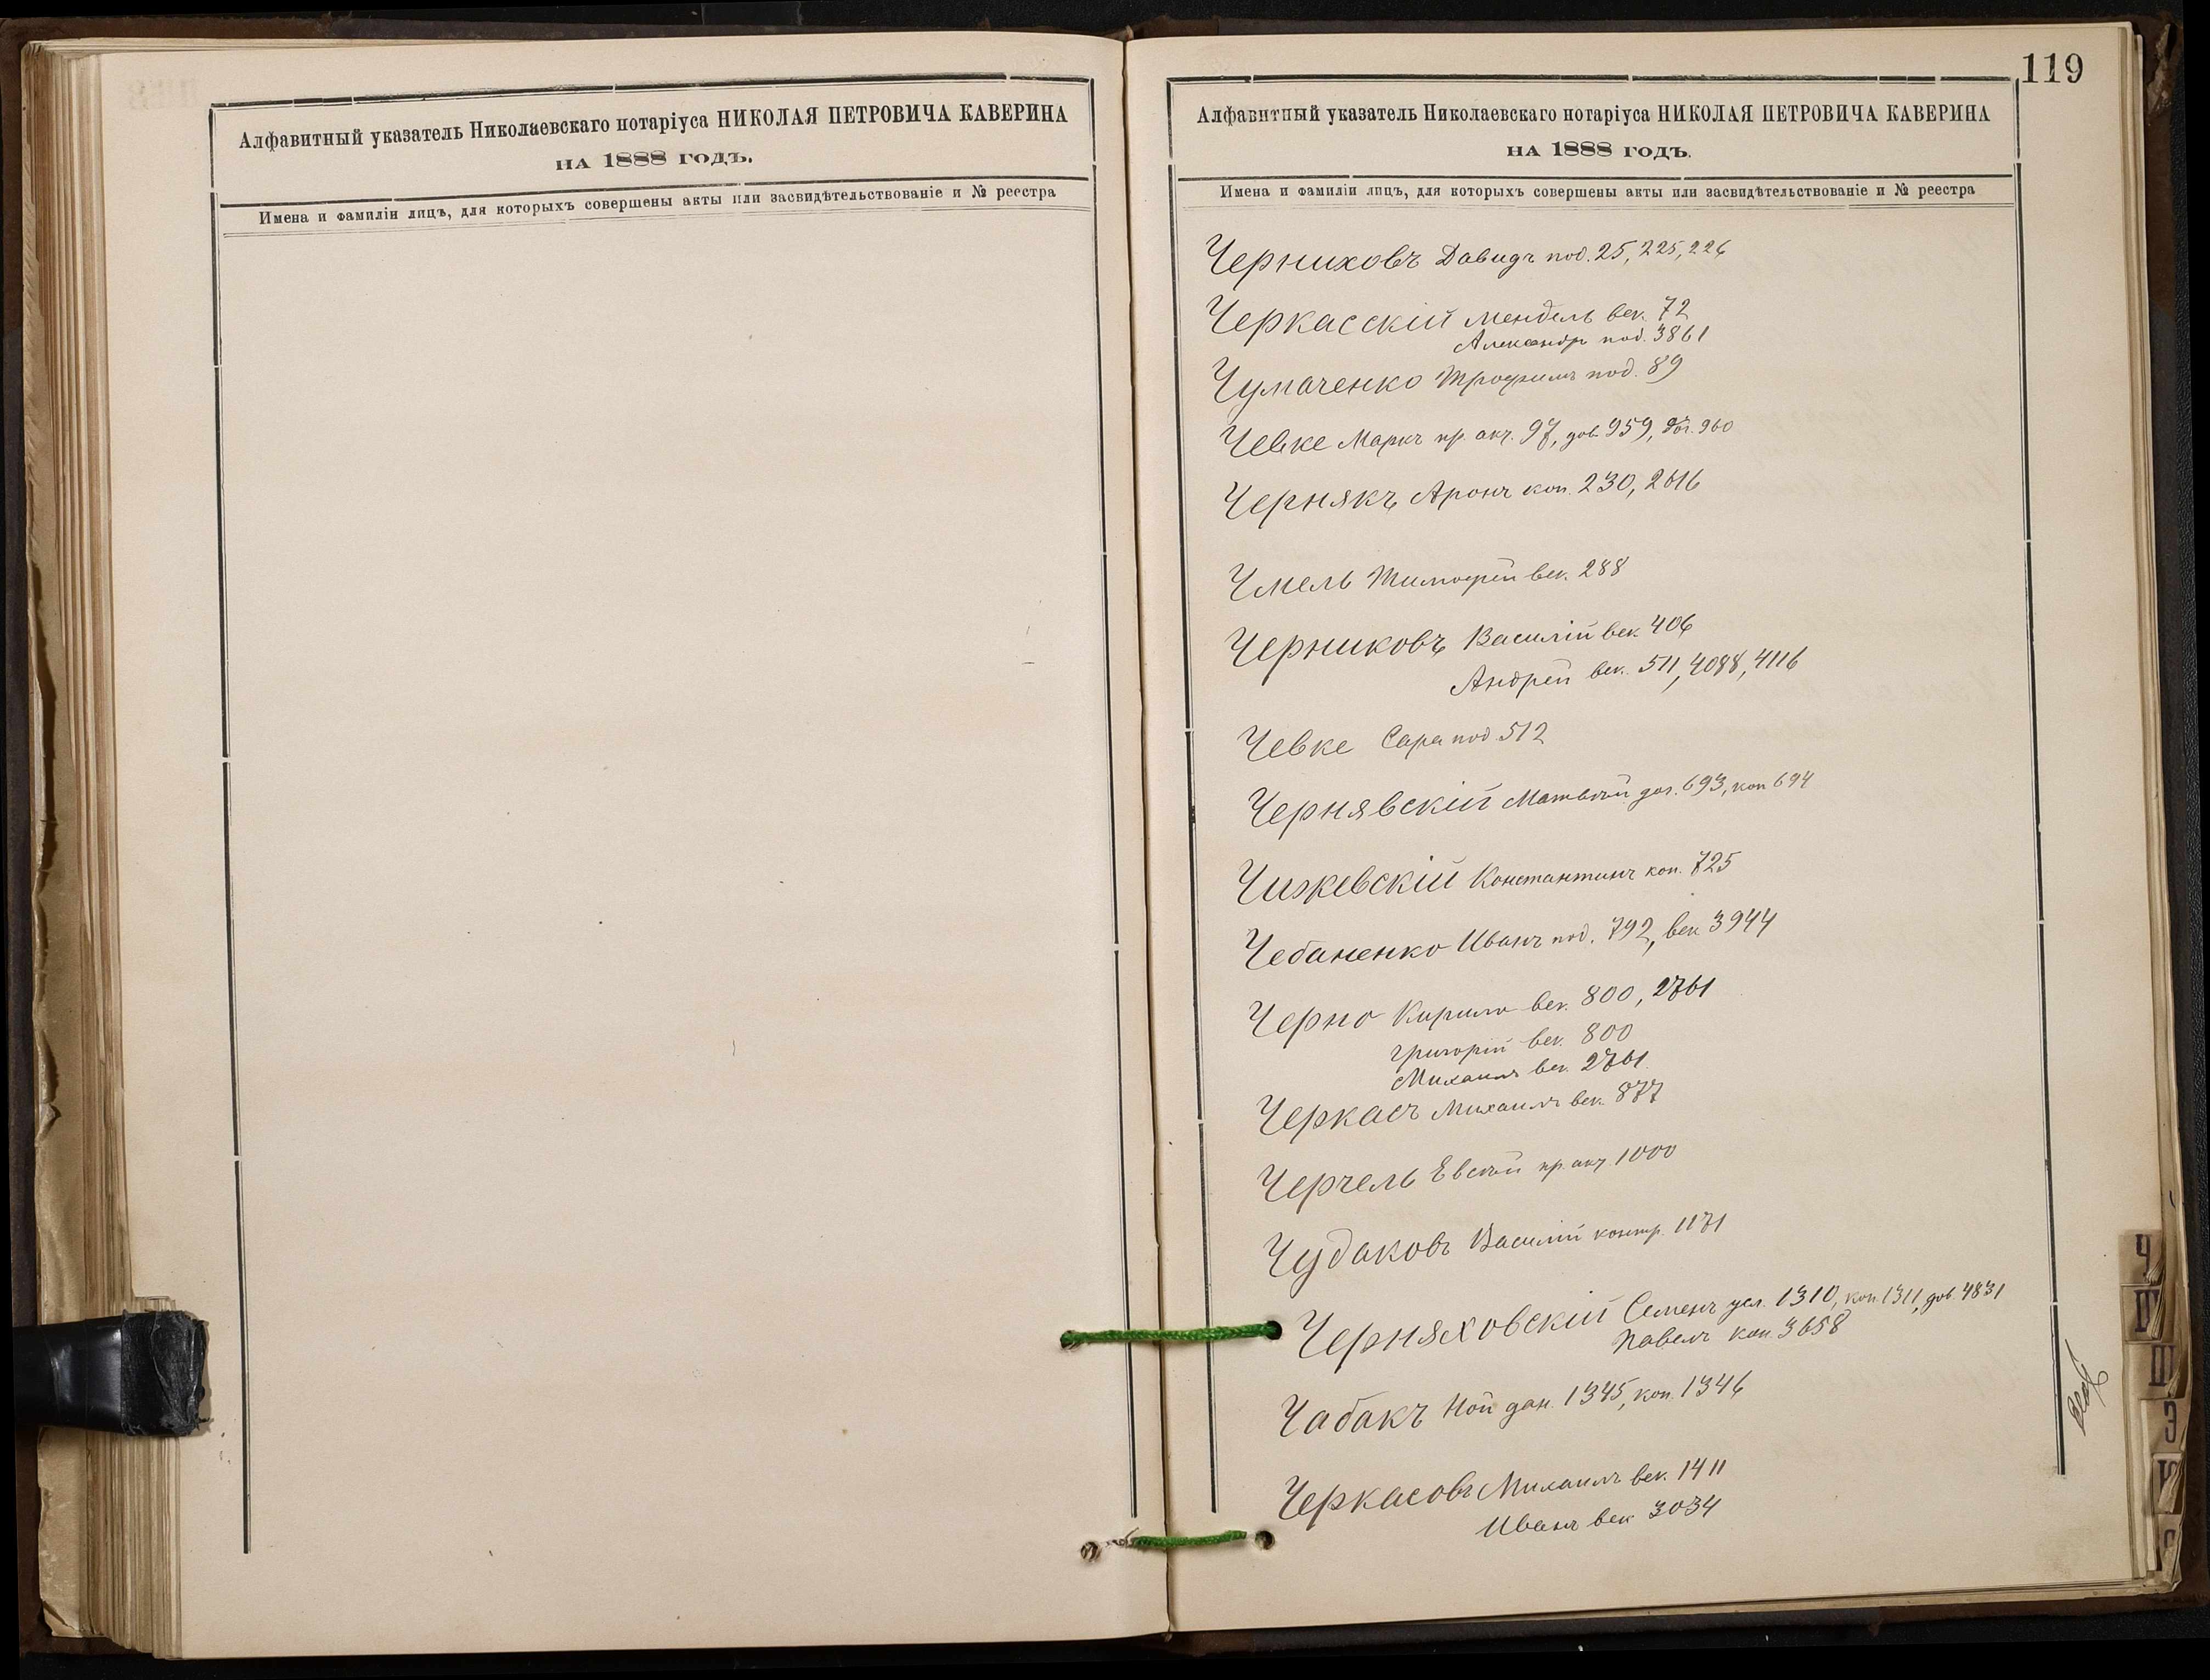 Алфавитный указатель Николаевскаго нотаріуса НИКОЛАЯ ПЕТРОВИЧА КАВЕРИНА
на 1888 годъ.
Имена и фамиліи лицъ, для которыхъ совершены акты или засвидѣтельствованіе и № реестра
119
Алфавитный указатель Николаевскаго нотаріуса НИКОЛАЯ ПЕТРОВИЧА КАВЕРИНА
на 1888 годъ.
Имена и фамиліи лицъ, для которыхъ совершены акты или засвидѣтельствованіе и № реестра
Черниховъ Давидъ под. 25, 225, 226
Черкасскій Мендель век. 72
Александр под. 3861
Чумаченко Трофимъ под. 89
Чевке Маркъ пр. акт. 97, дов 959, дог. 960
Чернякъ Аронъ коп. 230, 2616
Чмель Тимофей век. 288
Черниковъ Василій век 406
Андрей век. 511, 4088, 4116
Чевке Сара под 512
Чернявскій Матвѣй дог. 693, коп 694
Чижевскій Константинъ коп. 725
Чебаненко Иванъ под. 792, век 3944
Черно Кирило век. 800, 2761
Григорій век. 800
Михаилъ век. 2761
Черкасъ Михаилъ век. 877
Черчель Евсѣй пр. акт. 1000
Чудаковъ Василій контр. 1171
Черняховскій Семенъ 1310, коп. 1311, дов. 4831
Павелъ коп 3658
Чабакъ Ной дан. 1345, коп. 1346
Черкасовъ Михаилъ век. 1411
Иванъ век 3034
Ч
Ш
Э